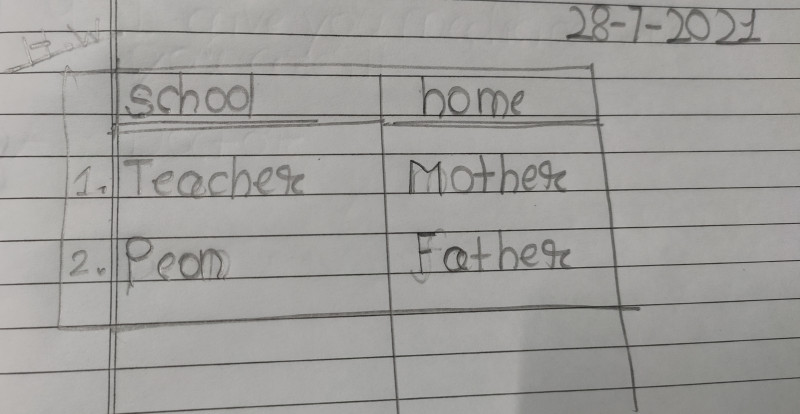 28-7-2021
H.W
school home
1. Teacher Mother
2. Peon Father